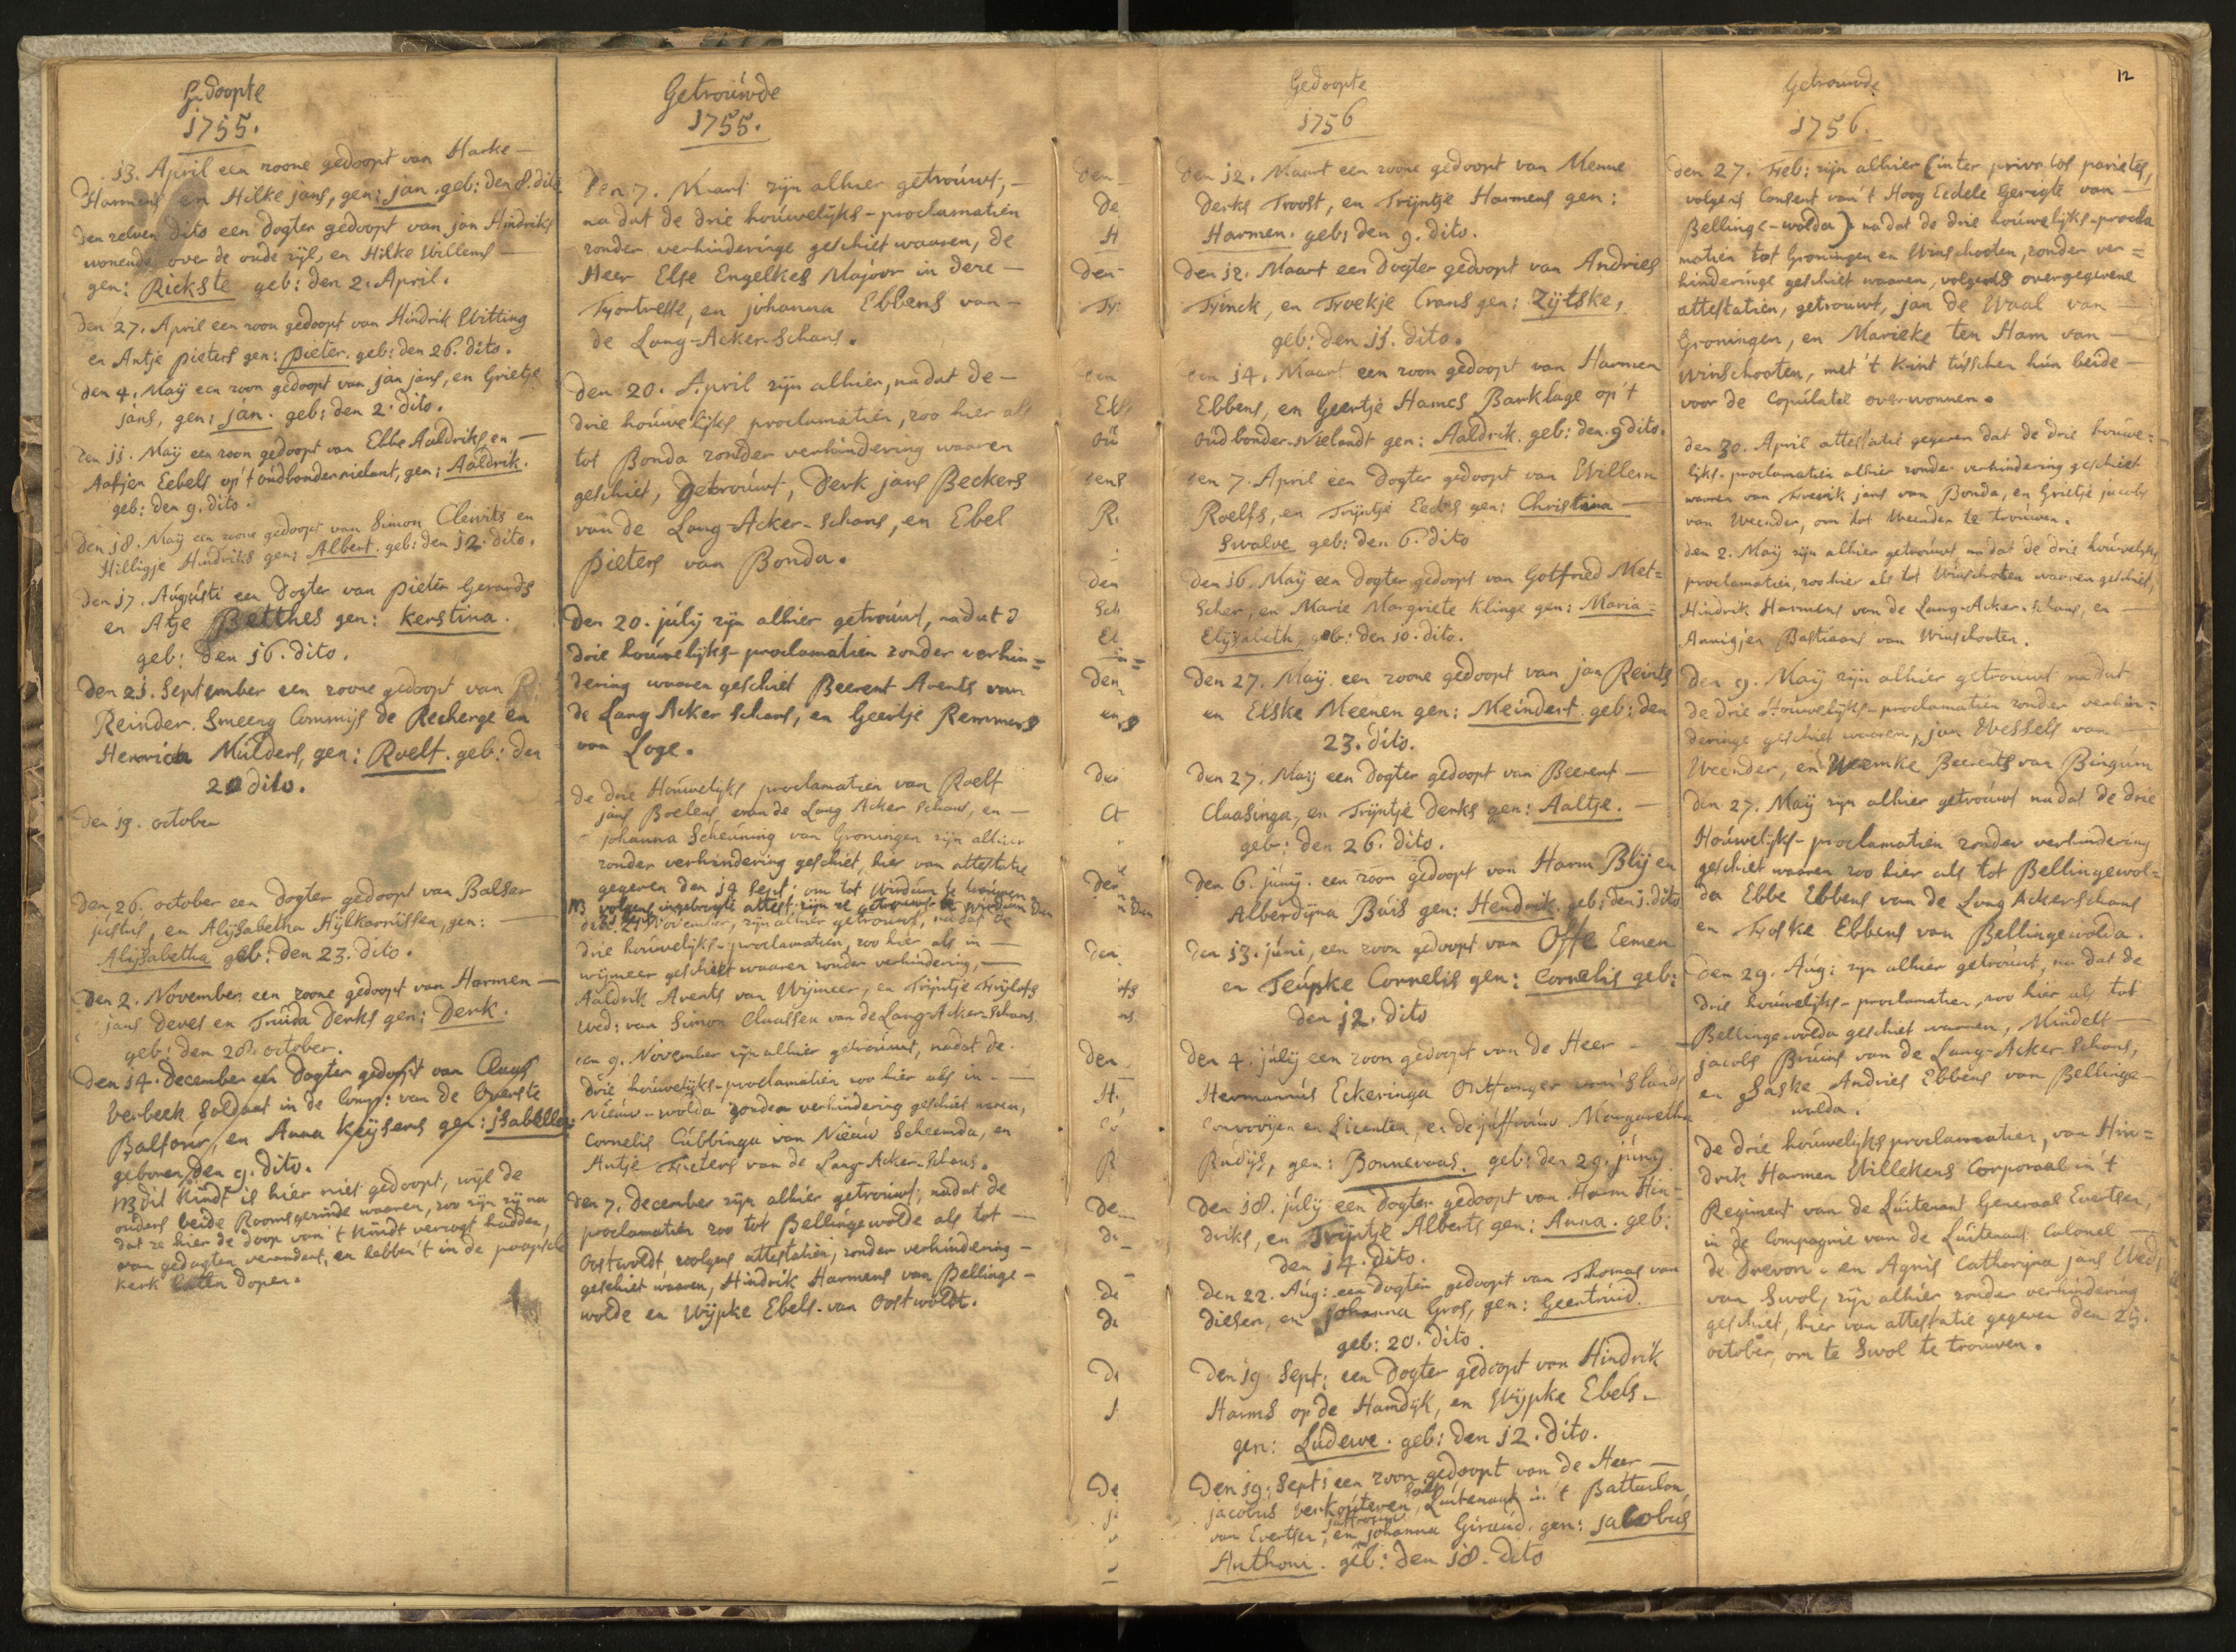 Gedoopte
1755.
13. April een zoone gedoopt van Harke -
Harmens en Hilke jans, gen: jan. geb: den 8. dito
den zelven dito een dogter gedoopt van jan Hindriks
wonende over de oude zijl, en Hilke Willems -
gen: Rickste geb: den 2. April.
den 27. April een zoon gedoopt van Hindrik Witting
en Antje pieters gen: pieter. geb: den 26. dito.
den 4. Maÿ een zoon gedoopt van jan jans, en Grietje
jans, gen: jan. geb: den 2. dito.
den 11. Maÿ een zoon gedoopt van Ebbe Aaldriks en -
Aafjen Eebels op 't oudbondernielant, gen: Aaldrik.
geb: den 9. dito.
den 18. Maÿ een zoone gedoopt van Simon Clewits en
Hilligje Hindriks gen: Albert. geb: den 12. dito.
den 17. Augústi een dogter van pieter Gerards
en Atje Betthes gen: kerstina.
geb: den 16. dito.
den 21. September een zoone gedoopt van
Reinder Smeeng Commijs de Recherge en
Henrica Mulders, gen: Roelf. geb: den
20 dito.
den 19. october
den 26. october een dogter gedoopt van Balser
jústús, en Alijsabetha Hijlkarnissen, gen:
Alijsabetha geb: den 23. dito.
den 2. November een zoone gedoopt van Harmen -
jans deves en Trúda derks gen: Derk.
geb: den 28. october.
den 14. december een dogter gedoopt van Claas
verbeek soldaat in de Comp: van de Overste
Balfour, en Anna keÿsers gen: jsabella:
geboren den 9. dito.
NB dit kindt is hier niet gedoopt, wijl de
ouders beide Roomsgezinde waaren, zoo zijn zij na
dat ze hier de doop van 't kindt verzogt hadden,
van gedagten verandert, en hebben 't in de paapsche
kerk laten dopen.
Getroúwde
1755.
den 7. Maart zijn alhier getroúwt, -
na dat de drie hoúwelijks-proclamatien
zonder verhinderinge geschiet waaren, de
Heer Else Engelkes Majoor in dese -
Fortresse, en johanna Ebbens van -
de Lang-Acker-Schans.
den 20. April zijn alhier, na dat de -
drie hoúwelijks proclamatien, zoo hier als
tot Bonda zonder verhindering waaren
geschiet, getroúwt, Derk jans Beckers
van de Lang-Acker-Schans, en Ebel
pieters van Bonda.
den 20. júlij zijn alhier getroúwt, na dat d
drie hoúwelijks-proclamatien zonder verhin=
dering waaren geschiet Beerent Arents van
de Lang Acker schans, en Geertje Remmers
van Loge.
de drie Hoúwelijks proclamatien van Roelf
jans Boelens van de Lang Acker schans, en -
johanna Scheúning van Groningen zijn alhier
zonder verhindering geschiet, hier van attestatie
gegeven den 19 Sept: om tot Wirdúm te troúwen
NB volgens ingebragte attest: zijn ze getrouwt te Wirdum den
21 November, zijn alhier getroúwt, na dat de
drie hoúwelijks-proclamatien, zoo hier als in -
wijmeer geschiet waaren zonder verhindering, -
Aaldrik Arents van Wijmeer, en Trijntje
Wed: van Simon Claassen van de Lang-Acker-Schans.
den 9. November zijn alhier getroúwt, nadat de
drie hoúwelijks-proclamatien zoo hier als in -
Nieúw-wolda zonder verhindering geschiet waren,
Cornelis Cúbbinga van Nieúw Scheemda, en
Antje Fieters van de Lang-Acker-Schans.
den 7. december zijn alhier getroúwt, nadat de
proclamatien zoo tot Bellingewolde als tot -
Oostwoldt, volgens attestatien, zonder verhindering -
geschiet waaren, Hindrik Harmens van Bellinge-
wolde en Wijpke Ebels van Oostwoldt.
Gedoopte
1756
den 12. Maart een zoone gedoopt van Menne
derks Troost, en Trijntje Harmens gen:
Harmen. geb: den 9. dito.
den 12. Maart een dogter gedoopt van Andries
Frinck, en Froekje Crans gen: Zijtske,
geb: den 11. dito.
den 14. Maart een zoon gedoopt van Harmen
Ebbens, en Geertje Hames Barklage op 't
oúdbonder-Nielandt gen: Aaldrik. geb: den 9 dito.
den 7. April een dogter gedoopt van Willem
Roelfs, en Trijntje Eedes gen: Christina -
Swalve geb: den 6. dito
den 16. Maÿ een dogter gedoopt van Gotfried Met=
scher, en Marie Margriete klinge gen: Maria =
Elijsabeth. geb: den 10. dito.
den 27. Maÿ een zoone gedoopt van jan Reints
en Elske Meenen gen: Meindert. geb: den
23. dito.
den 27. Maÿ een dogter gedoopt van Beerent -
Claasinga, en Trijntje derks gen: Aaltje. -
geb: den 26. dito.
den 6. júnij. een zoon gedoopt van Harm Blij en
Alberdijna Búis gen: Hendrik. geb: den 1. dito
den 13. júni, een zoon gedoopt van Offe Eemen
en Teúpke Cornelis gen: Cornelis geb:
den 12. dito
den 4. júlij een zoon gedoopt van de Heer -
Hermannús Eckeringa Ontfanger van 's lands
Convoijen en Licenten, en de júffroúw Margaretha
Rúdijs, gen: Bonnevaas. geb: den 29. júnij
den 18. júlij een dogter gedoopt van Harm Hin-
driks, en Trijntje Alberts gen: Anna. geb:
den 14. dito.
den 22. Aúg: een dogter gedoopt van Thomas van
diesen, en johanna Gros, gen: Geertrúid.
geb: 20. dito.
den 19. Sept: een dogter gedoopt van Hindrik
Harms op de Hamdijk, en Wijpke Ebels -
gen: Lúdewe. geb: den 12. dito.
den 19. Sept: een zoon gedoopt van de Heer -
jacobús verkoúteren, Lúitenant in 't Battaclon
van Evertsen, en juffrouw johanna Giraúd. gen: jacobús
Anthoni. geb: den 18. dito
Getrouwde
1756.
12
den 27. Feb: zijn alhier (inter privatos parietes,
volgens Consent van 't Hoog Eedele Gerigte van -
Bellinge-wolda) na dat de drie hoúwelijks-procla
matien tot Groningen en Winschooten, zonder ver=
hinderinge geschiet waaren, volgens overgegevene
attestatien, getroúwt, jan de Waal van -
Groningen, en Marieke ten Ham van -
Winschooten, met 't kint tússchen hún beide -
voor de Copúlatie overwonnen.
den 30. April attestatie gegeven dat de drie hoúwe=
lijks-proclamatien alhier zonder verhindering geschiet
waren van Frerik jans van Bonda, en Grietje jacobs
van Weender, om tot Weender te troúwen.
den 2. Maÿ zijn alhier getroúwt na dat de drie hoúwelijks
proclamatien, zoo hier als tot Winschoten waaren geschiet,
Hindrik Harmens van de Lang-Acker-Schans, en -
Annigjen Bastiaans van Winschooten.
den 9. Maÿ zijn alhier getrouwt na dat
de drie Hoúwelijks-proclamatien zonder verhin=
deringe geschiet waaren, jan Wessels van
Weender, en Weemke Beerents van Bingúm
den 27. Maÿ zijn alhier getroúwt na dat de drie
Hoúwelijks-proclamatien zonder verhindering
geschiet waaren zoo hier als tot Bellingewol=
da Ebbe Ebbens van de Lang Ackerschans
en Foske Ebbens van Bellingewolda.
den 29. Aúg: zijn alhier getrouwt, na dat de
drie hoúwelijks-proclamatien, zoo hier als tot
Bellingewolda geschiet waaren, Mindelt -
jacobs Bruins van de Lang-Acker-Schans,
en Saske Andries Ebbens van Bellinge-
wolda.
de drie hoúwelijks proclamatien, van Hin=
drik Harmen Willekens Corporaal in 't
Regiment van de Lúitenant Generaal Evertsen,
in de Compagnie van de Lúitenant Colonel -
de Drevon. en Agnis Catharijna jans Wed:
van Swol, zijn alhier zonder verhindering
geschiet, hier van attestatie gegeven den 25.
october, om te Swol te troúwen.